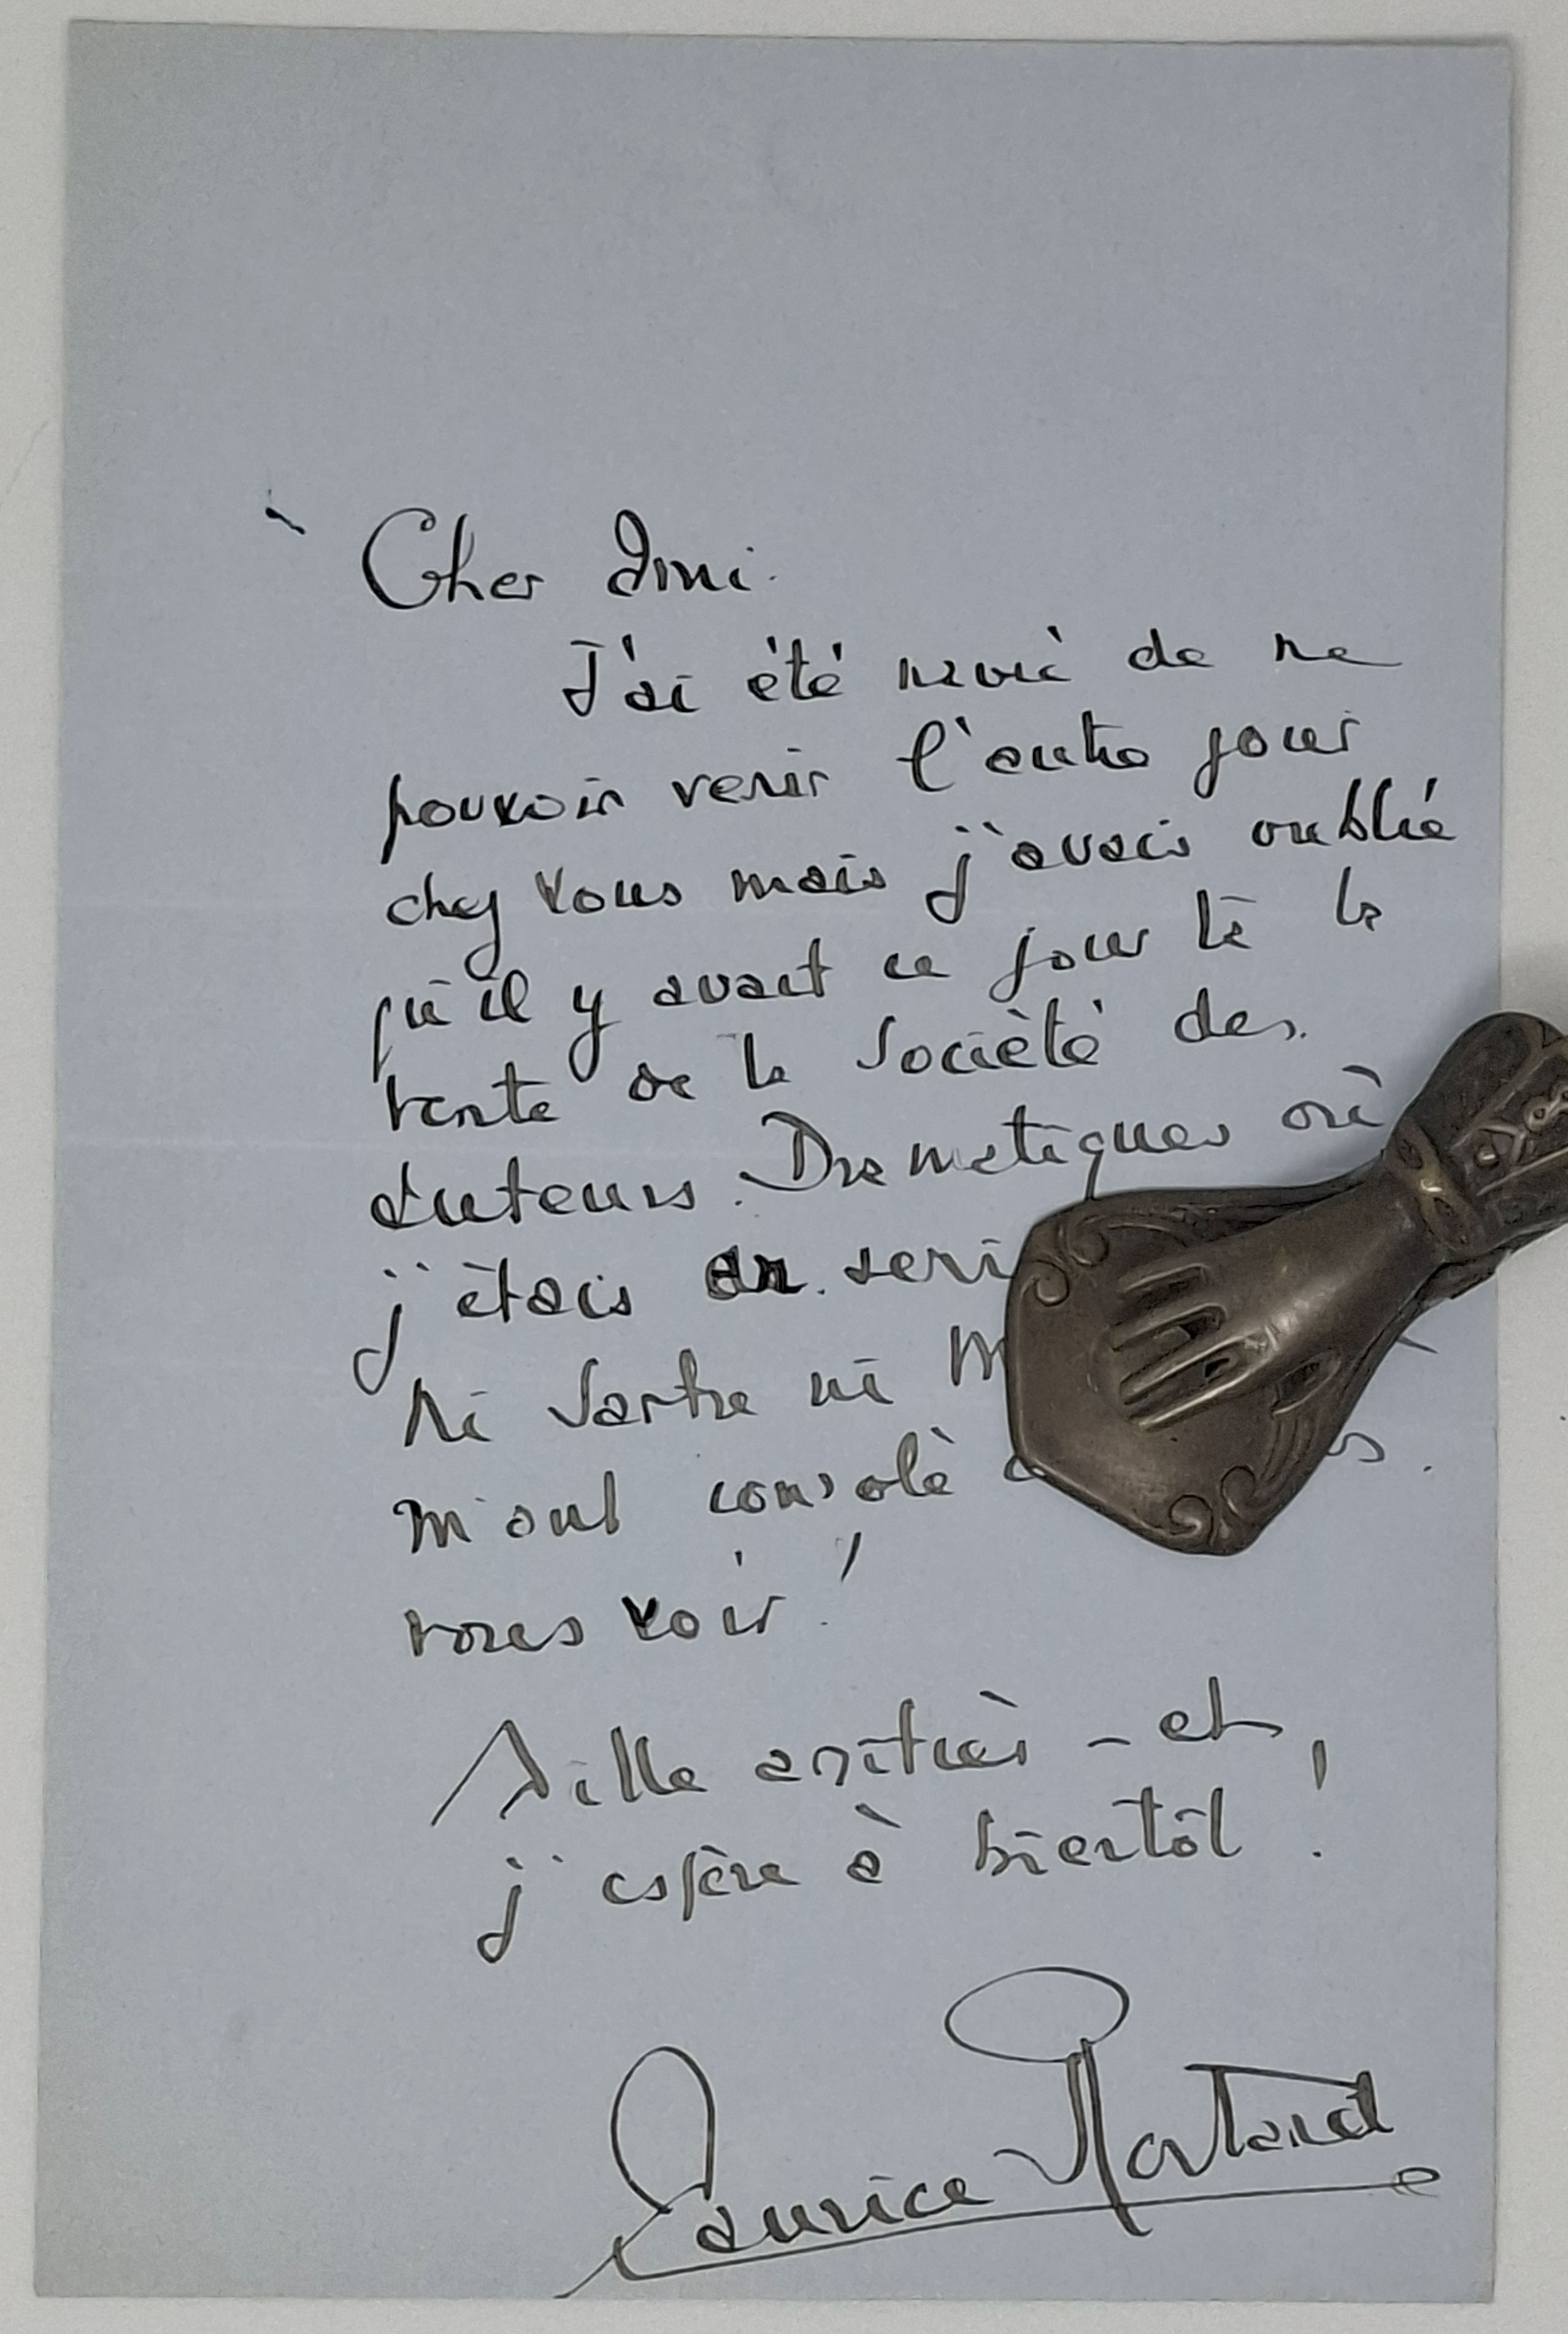 Cher Ami.
J'ai été navré de ne
pouvoir venir l'autre jour
chez vous mais j'avais oublié
qu'il y avait ce jour là la
vente de la Société des
Auteurs Dramatiques où
j'étais en seri
Ni Sartre ni M
m'ont consolé
vous voir !
Mille amitiés - et,
j'espère à bientôt !
Maurice Rostand